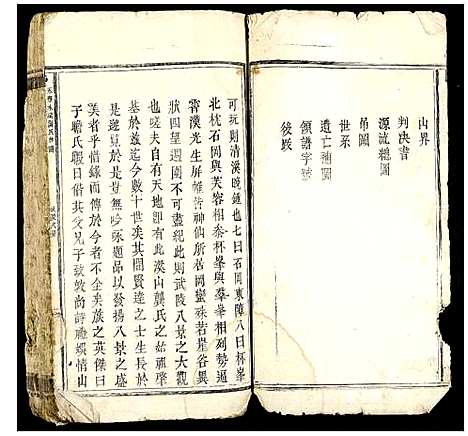 山界
判决書
源流總圖
吊圖
世系
遺亡補圖
領譜字號
後跋
可玩則清溪晚鍾也七曰石岡東障八曰杯峯
北枕石岡與芙蓉相黍杯峯與芙蓉相列勢逼
霄漢光生屏帷昔神仙所居岡巒殊若崖谷異
狀四望週圍不可盡觀此則武陵八景之大觀
也嗟夫自有天地即有此溪山龔氏之始祖肇
基於兹迄今數十世矣其間賢達之士生長於
是遨覽於是豈無吟咏題品以發揚八景之盛
美者乎惜緣而傳於今者不全矣族之英傑曰
子瞻氏暇日偕其父兄子敘敚尚詩禮娛情山